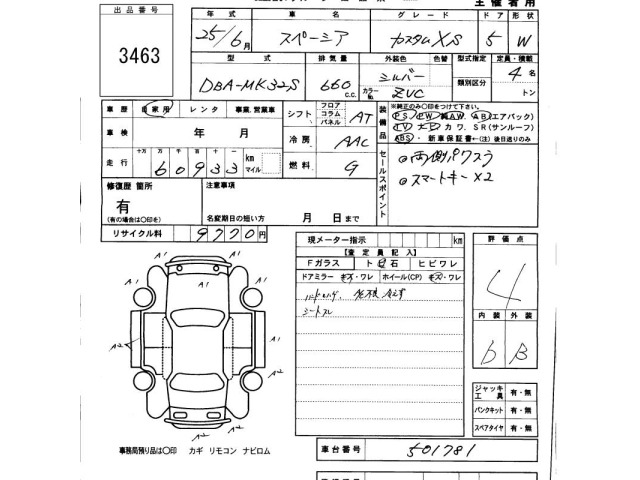 主催者用
出品番号
3463
年式 車名 グレード ドア 形状
25/6月 スペーシア カスタムXS 5 W
型式 排気量 外装色 色替 型式指定 定員・積載
DBA-MK32S 660 c.c. シルバー カラーNo. ZVC 類別区分 4名 トン
車歴 自家用 レンタ 事業、営業車
車検 年 月
走行 十万 万 千 百 十 一 km マイル
60933
シフト フロア コラム パネル AT
冷房 AAC
燃料 G
装備品
※純正のみ〇印をつけて下さい。
PS PW 純AW. AB(エアバック)
TV ナビ カワ. SR(サンルーフ)
ABS ・新車保証書←(注)後日送りのみ
セールスポイント
両側パワスラ
スマートキーX2
修復歴 箇所
有
(有の場合は〇印を)
注意事項
名変期日の短い方 月 日まで
リサイクル料 9770円
現メーター指示 km
【査定員記入】
Fガラス トビ石 ヒビワレ
ドアミラー キズ・ワレ ホイール(CP) キズ・ワレ
シートスレ
評価点
4
内装 外装
b B
A1 A1
A1 A1
A2 A1
A2
A1
ジャッキ 工具 有・無
パンクキット 有・無
スペアタイヤ 有・無
事務局預り品は〇印 カギ リモコン ナビロム
車台番号 501781